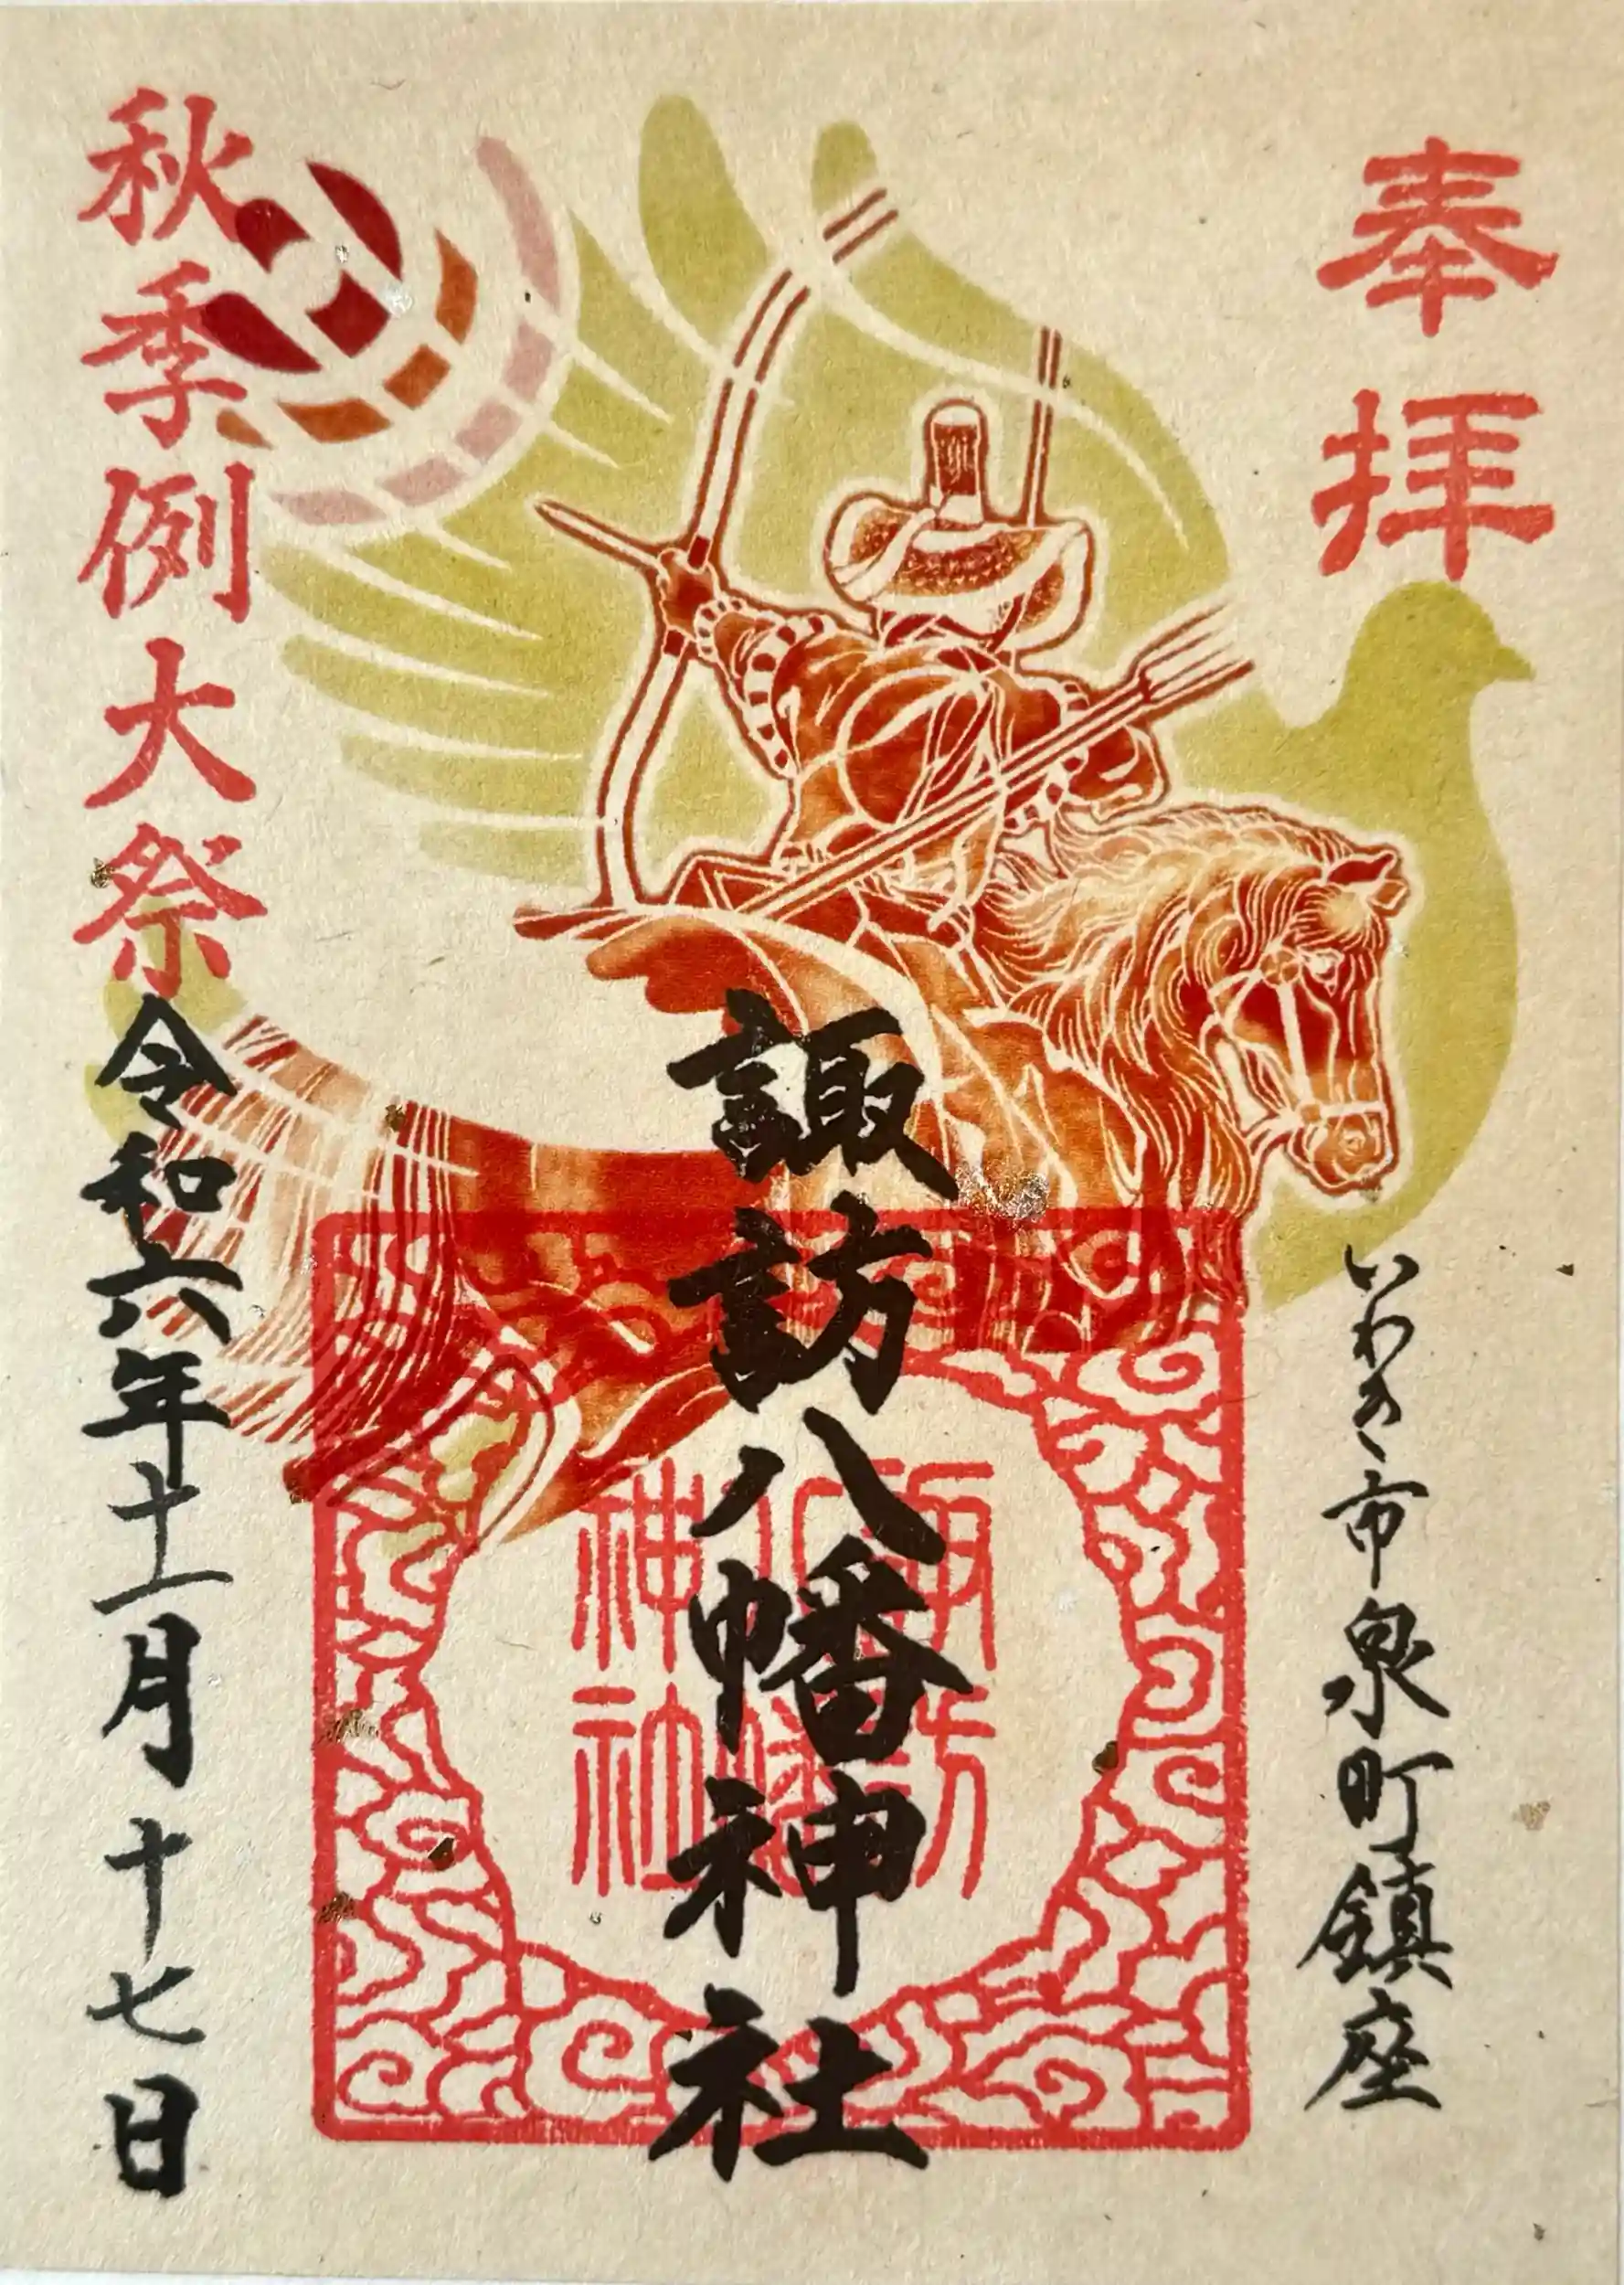 奉拝
いわき市泉町鎮座
諏訪八幡神社
諏訪八幡神社
秋季例大祭
令和六年十一月十七日